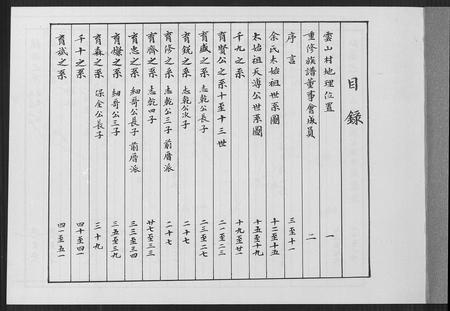 目錄
雲山村地理位置 一
重修族譜董事會成員 二
序言 三至十一
余氏太始祖世系圖 十二至十五
太始祖天溥公世系圖 十五至十九
千九之系 十九至廿一
育賢公之系十至十三世 二一至二三
育盛之系 志乾公長子 二三至二七
育銳之系 志乾公次子 二十七
育修之系 志乾公三子 前厝派 二十七
育齊之系 志乾四子 廿七至三三
育忠之系 細哥公長子 前厝派 三三至三四
育燦之系 細哥公二子 三五至三九
育森之系 保全公長子 三十九
千十之系 四十至四十
育斌之系 四一至五一